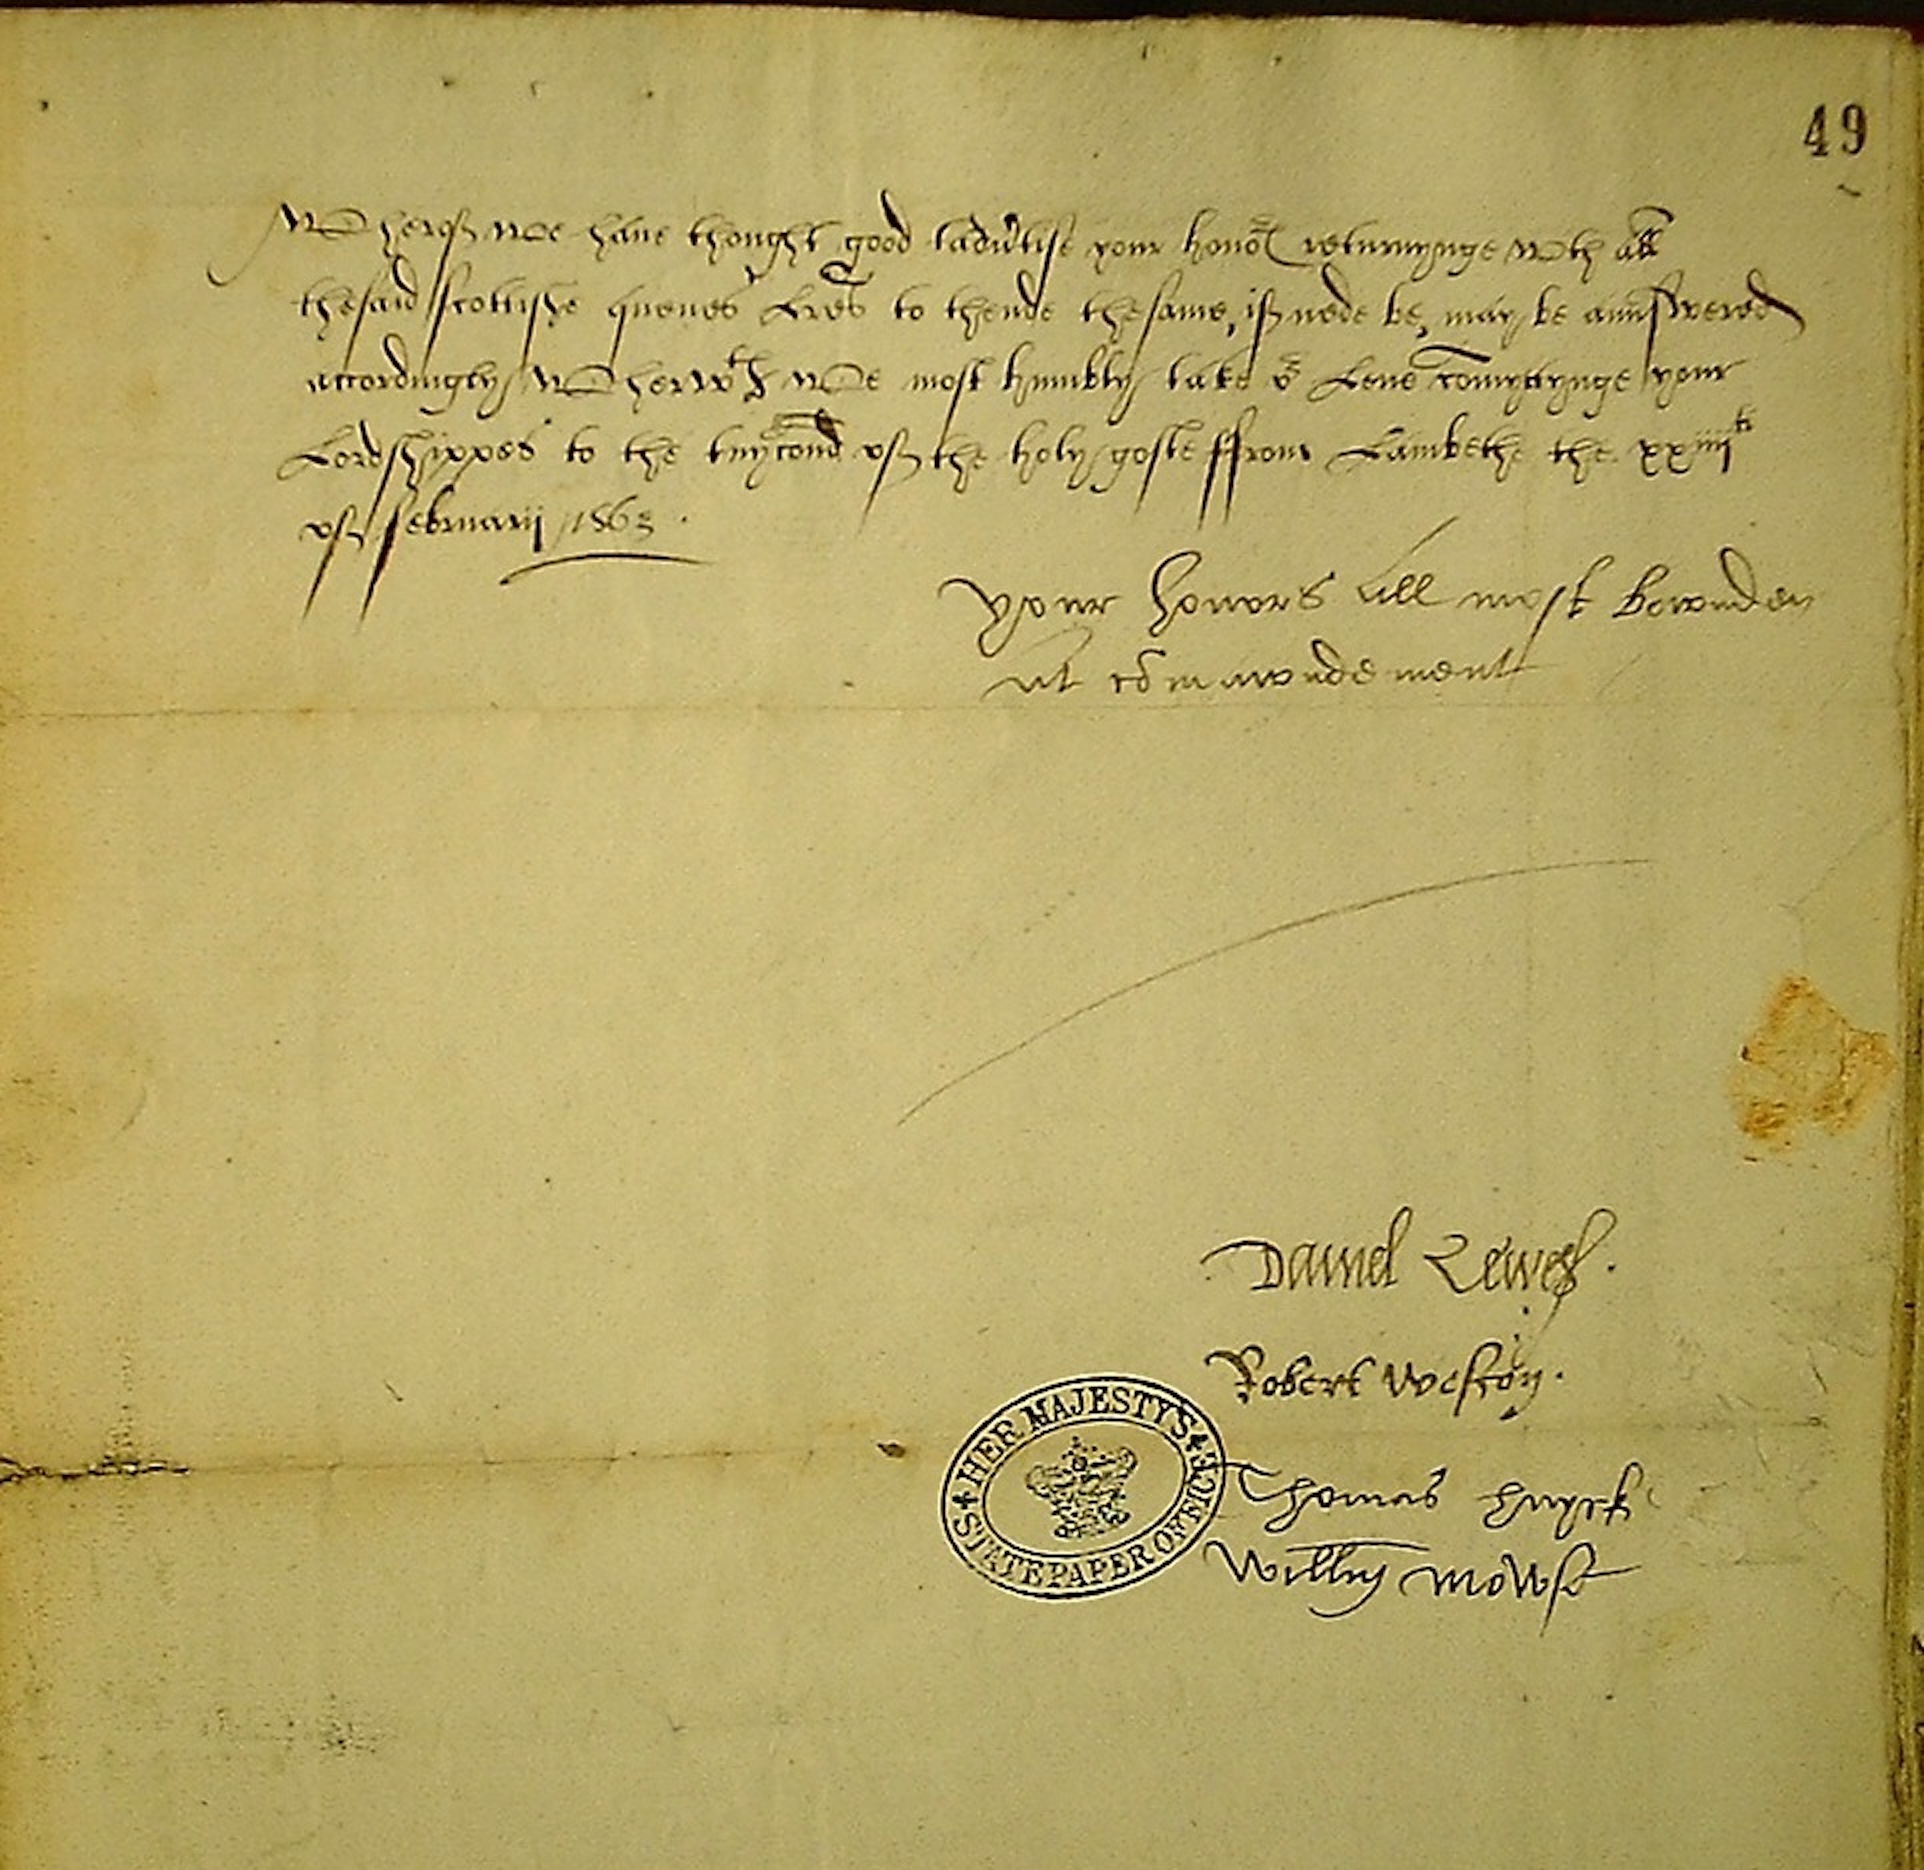 49
Wherof we have thought good tadvertise your honors returnynge with all
thesaid Scottishe quenes lres to thende thesame, if nede be, may be aunswered
accordingly Wherwth we most humbly take or leve comyttynge your
Lordshippes to the of the holy goste ffrom Lambethe the xxiiiiti
of februarii 1563.
Your honors all most bownden
at comawndement
Daniel Lewes.
Robert Weston.
Thomas Huyck
Willm Mowse
HER MAJESTY'S STATE PAPER OFFICE